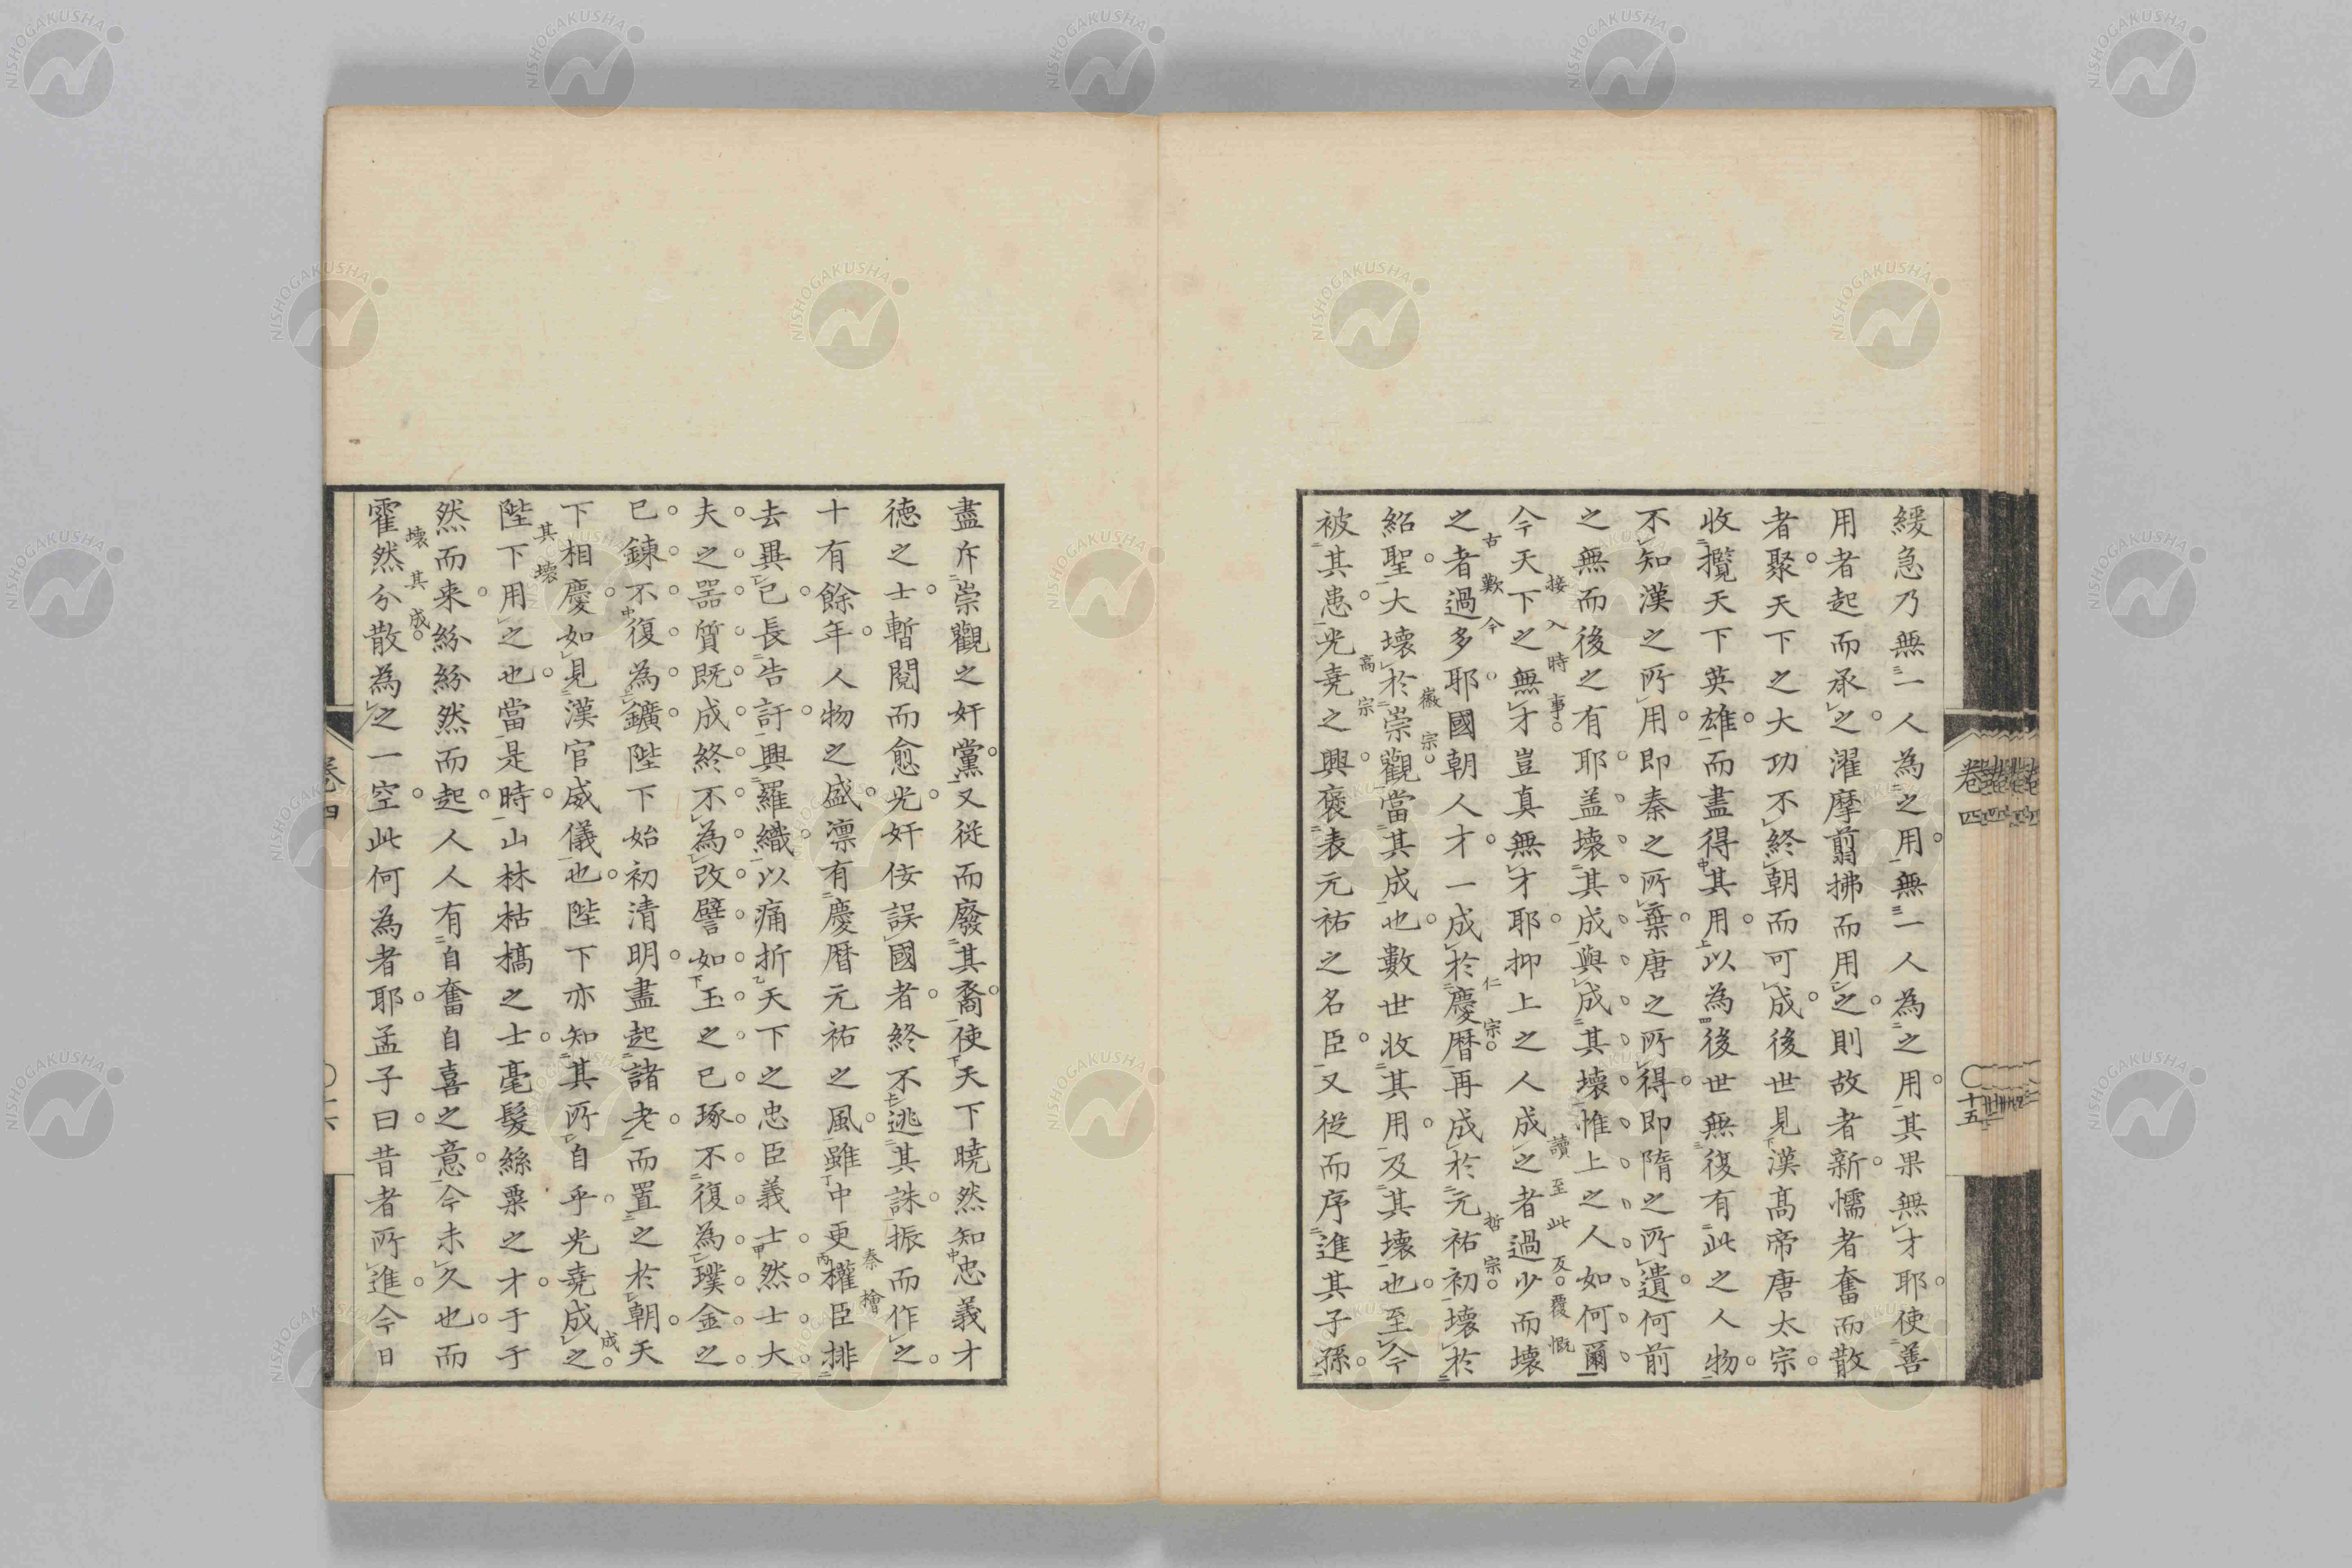 緩急乃無一人為之用無一人為之用其果無才耶使善
用者起而承之濯摩翦拂而用之則故者新懦者奮而散
者聚天下之大功不終朝而可成後世見漢髙帝唐太宗
收攬天下英雄而盡得其用以為後世無復有此之人物
不知漢之所用即秦之所棄唐之所得即隋之所遺何前
之無而後之有耶盖壊其成與成其壊惟上之人如何爾
接入時事
今天下之無才豈真無才耶抑上之人成之者過少而壊
讀至此及覆慨
古歎今
之者過多耶國朝人才一成於慶曆再成於元祐初壊於
仁宗
哲宗
紹聖大壊於崇觀當其成也數世收其用及其壊也至今
徽宗
被其患光堯之興褒表元祐之名臣又從而序進其子孫
高宗
卷四
十五
盡斥崇觀之奸黨又從而廢其裔使天下曉然知忠義才
徳之士暫閲而愈光奸佞誤國者終不逃其誅振而作之
十有餘年人物之盛凛有慶暦元祐之風雖中更權臣排
秦檜
去異已長告訐興羅織以痛折天下之忠臣義士然士大
夫之噐質既成終不為改譬如玉之已琢不復為璞金之
已鍊不復為鑛陛下始初清明盡起諸老而置之於朝天
下相慶如見漢官威儀也陛下亦知其所自乎光堯成之
成
其壊
陛下用之也當是時山林枯槁之士毫髮絲粟之才于于
然而来紛紛然而起人人有自奮自喜之意今未久也而
壊其成
霍然分散為之一空此何為者耶孟子曰昔者所進今日
卷四
NISHOGAKUSHA